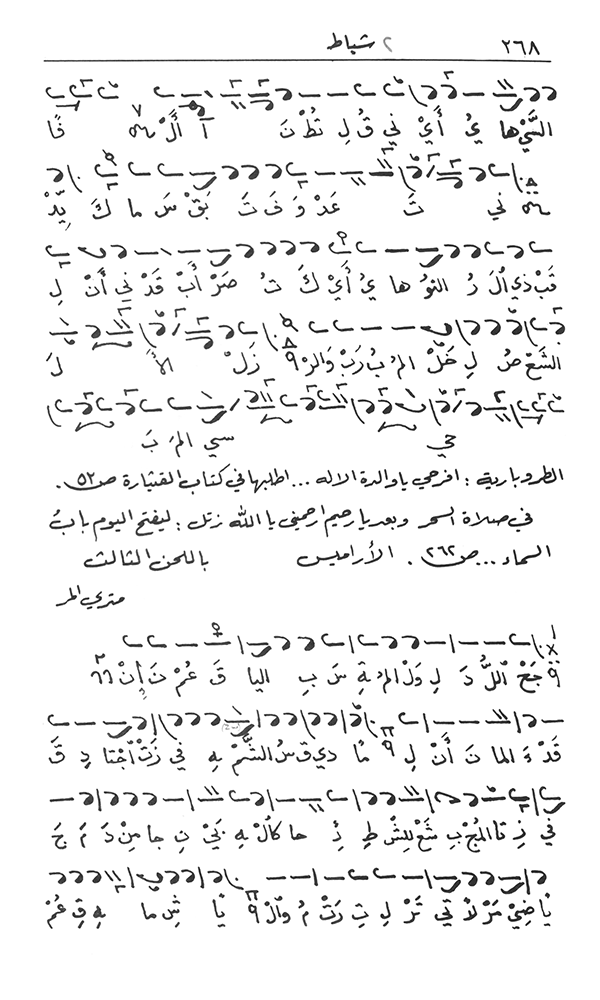 ٢٦٨ ٢ شباط
السَّيْ ها يُ أَيْ ني قُ لِ تُطْ نَ آ أَلْ فًا
ني تَ عَدْ وَ تَ بَقْ سَ ما كَ يِدْ
قَبْ ذي الَ رُ النو ها يُ أَيْ كَ تُ صَرْ أَبْ قَدْ ني أَنْ لِ
الشَعْ صُ لِ خَلْ المُ بُ رَبْ وَالرْ زَلْ الأَ لَ
حي سي المَ بَ
الطروبارية : افرحي يا والدة الاله ... اطلبها في كتاب القيثارة ص٥٢.
في صلاة السحر وبعد يا رحيم ارحمني يا الله زتل : ليفتح اليوم بابُ
السماء ... ص٢٦٢. الأراميس باللحن الثالث
متري المر
جَعْ اللُ دَ لِ وَلْ المُ ةِ سَ بِ اليا قَ عُمْ نَ إِنْ
قَدْ ءَ الما نَ أَنْ لِ مًا دي قَ سُ الشَمْ هِ في زَتْ آجْتا دِ قَ
في نِ تا المُجْ بِ شَعْ لِلشْ طِ ئِ حا كالْ هِ بَيْ نِ جا مِنْ دَ مَ جَ
ياضِيْ مَرْ لاَ تي تَرْ لِ تِ رَتْ مُ والْ يا شِ ما هِ قِ عُمْ